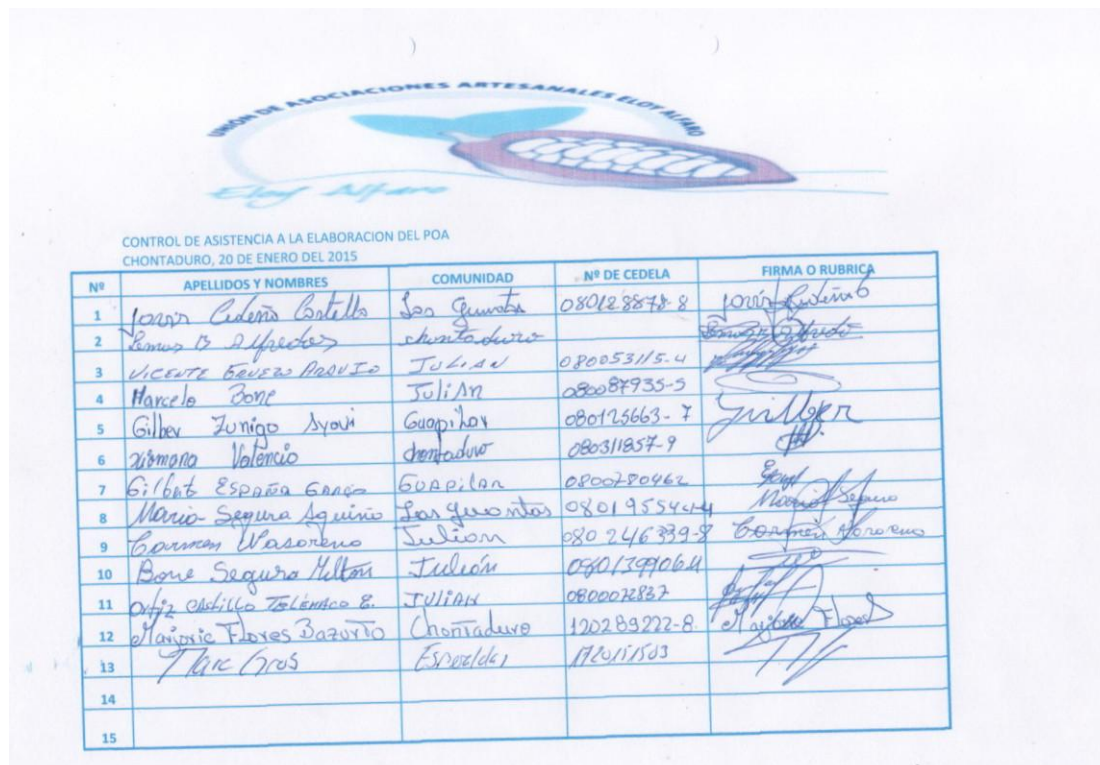 UNIÓN DE ASOCIACIONES ARTESANALES ELOY ALFARO
Eloy Alfaro
CONTROL DE ASISTENCIA A LA ELABORACION DEL POA
CHONTADURO, 20 DE ENERO DEL 2015
Nº APELLIDOS Y NOMBRES COMUNIDAD Nº DE CEDELA FIRMA O RUBRICA
1 Cedeño Castillo Los 080128878-8
2 Lemos B Alfredo chontaduro
3 VICENTE JULIAN 080053115-4
4 Marcelo Bone Julian 080087935-5
5 Gilber Zunigo Ayovi Guapilar 080125663-7 Gilber
6 Valencio chontaduro 080311857-9
7 Gilbert ESPAÑA GUAPILAN 0800780462
8 Maria Segura Aquiño Las 08019554 Maria Segura
9 Carmen Julian 080246339-8 Carmen
10 Bone Segura Milton Julión
11 Ortiz CASTILLO TELÉMACO E. JULIAN
12 Marjorie Flores Bazurto Chontaduro 120289222-8 Marjorie Flores
13 Marc Gros
14
15